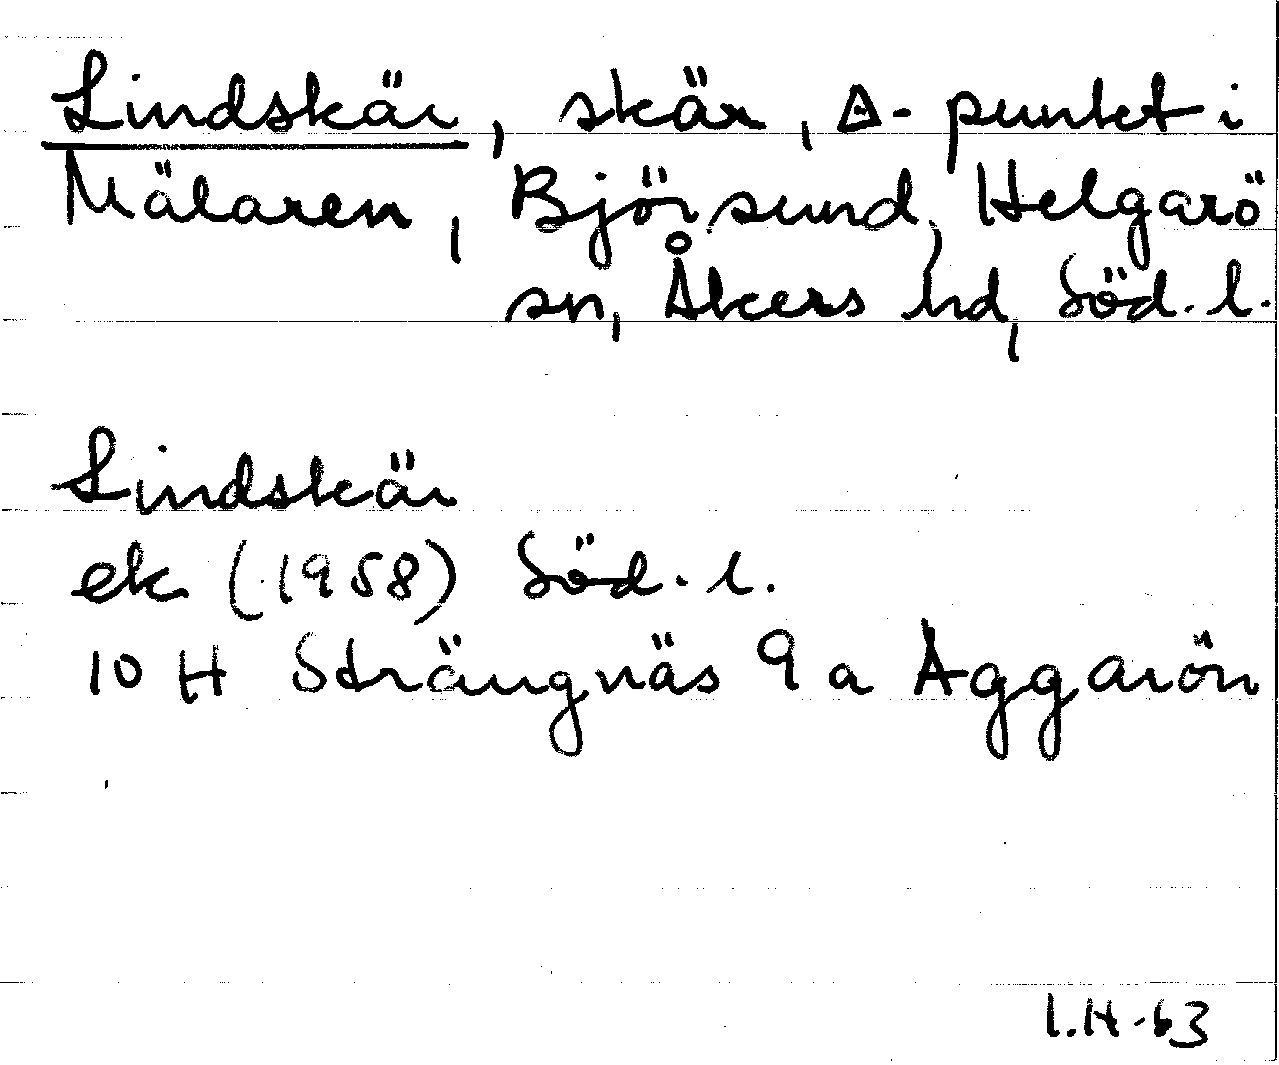 Lindskär, skär, Δ-punkt i
Mälaren, Björsund, Helgarö
sn, Åkers hd, Söd. l.
Lindskär
ek (1958) Söd. l.
10 H Strängnäs 9 a Aggarön
I.H-63